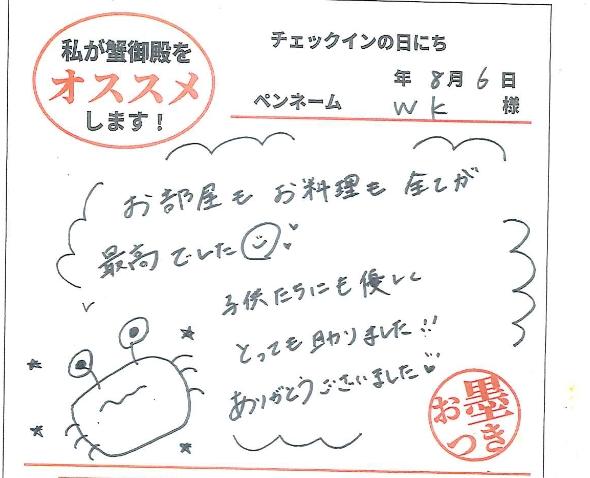 私が蟹御殿を
オススメ
します！
チェックインの日にち
年 8月 6日
ペンネーム WK 様
お部屋も お料理も 全てが
最高でした
子供たちにも優しく
とっても助かりました!!
ありがとうございました
お墨
つき